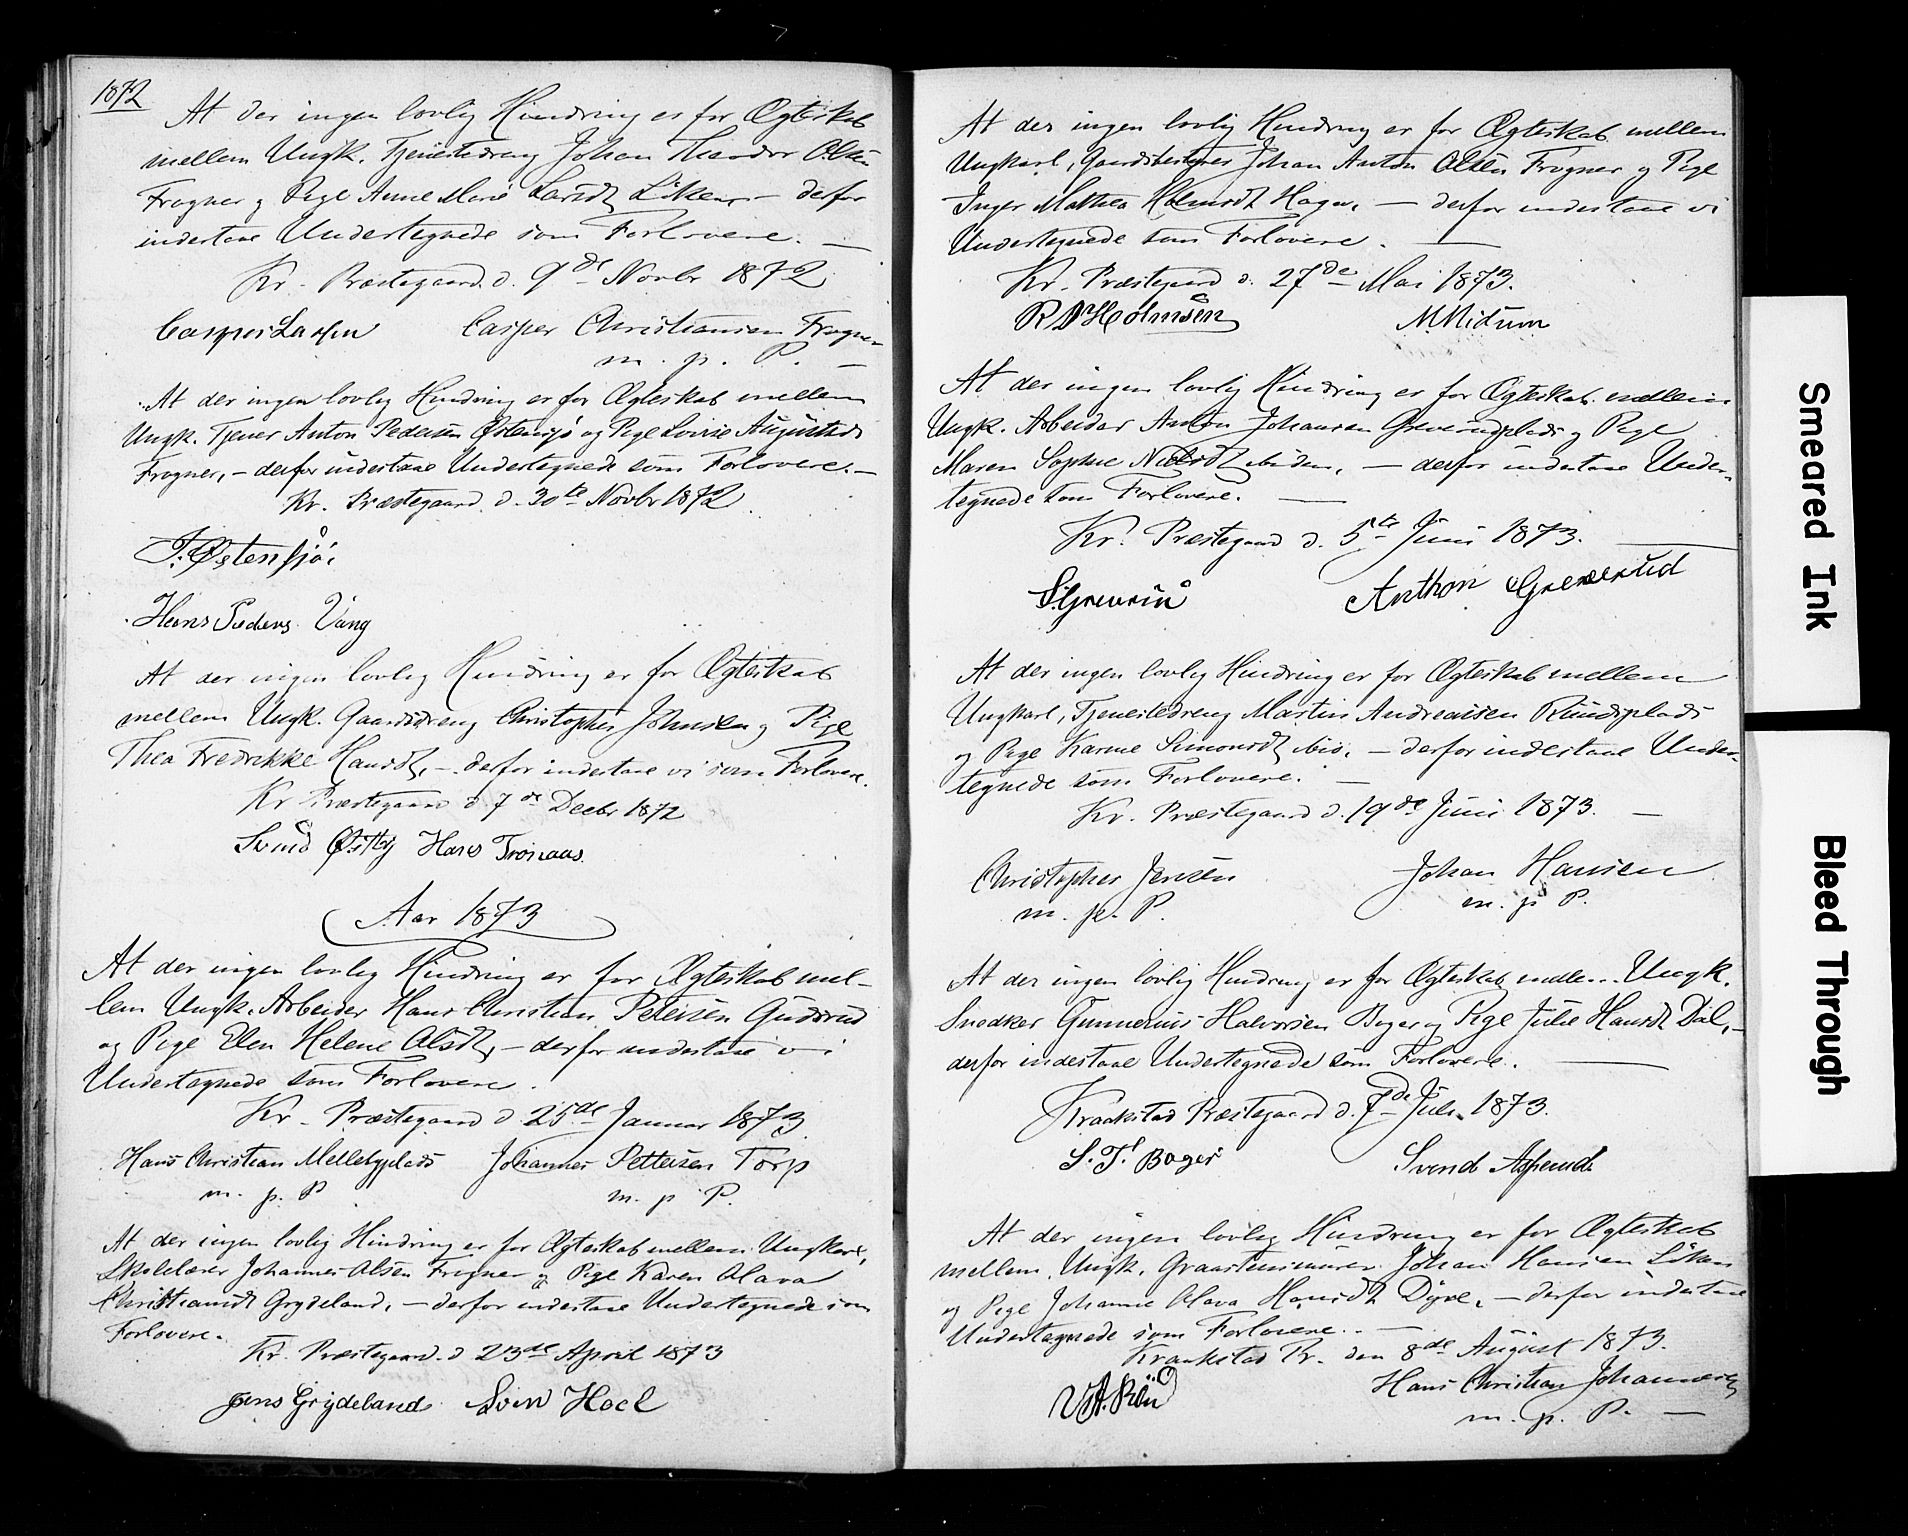 1872
At der ingen lovlig Hindring er for Ægteskab
mellem Ungk. Tjenestedreng Johan Theodor Olsen
Frogner og Pige Anne Marie Larsdt Liken, — derfor
indestaae Undertegnede som Forlovere. —
Kr. Præstegaard d. 9de Novbr 1872
Casper Larsen Casper Christiansen Frogner
m. p. P. —
At der ingen lovlig Hindring er for Ægteskab mellem
Ungk. Tjener Anton Pedersen Østensjø og Pige Lovise Augustsdt
Frogner, — derfor indestaae Undertegnede som Forlovere. —
Kr. Præstegaard d. 30te Novbr 1872
J. Østensjø
Hans Peders. Vang
At der ingen lovlig Hindring er for Ægteskab
mellem Ungk. Gaardsdreng Christopher Johnsen og Pige
Thea Fredrikke Hansdt, — derfor indestaae vi som Forlovere.
Kr Præstegaard d 7de Decbr 1872
Svend Østby Hans Tronaas
Aar 1873
At der ingen lovlig Hindring er for Ægteskab mel-
lem Ungk. Arbeider Hans Christian Petersen Gudsrud
og Pige Elen Helene Olsdt, — derfor indestaae vi
Undertegnede som Forlovere.
Kr. Præstegaard d. 25de Januar 1873
Hans Christian Mellebyplads Johannes Pettersen Torp
m. p. P m. p P.
At der ingen lovlig Hindring er for Ægteskab mellem Ungkarl,
Skolelærer Johannes Olsen Frogner og Pige Karen Olava
Christiansdt Grydeland, — derfor indestaae Undertegnede som
Forlovere.
Kr. Præstegaard d 23de April 1873
Jens Grydeland Sven Hoel
At der ingen lovlig Hindring er for Ægteskab mellem
Ungkarl, Gaardbestyrer Johan Anton Olsen Frogner og Pige
Inger Mathea Holmsdt Hagen, — derfor indestaae vi
Undertegnede som Forlovere. —
Kr. Præstegaard d. 27de Mai 1873.
R D Holmsen M. Midum
At der ingen lovlig Hindring er for Ægteskab mellem
Ungk. Arbeider Anton Johansen Greverudplads og Pige
Maren Sophie Nielsdt ibiden, — derfor indestaae Under-
tegnede som Forlovere. —
Kr. Præstegaard d. 5te Juni 1873. —
Anthon Greverud
At der ingen lovlig Hindring er for Ægteskab mellem
Ungkarl, Tjenestedreng Martin Andreassen Rudsplads
og Pige Karine Simonsdt ibid. — derfor indestaae Under-
tegnede som Forlovere. —
Kr. Præstegaard d. 19de Juni 1873. —
Christopher Jensen Johan Hansen
m. p. P. m. p P.
At der ingen lovlig Hindring er for Ægteskab mellem Ungk.
Snedker Gunnerius Halvorsen Boger og Pige Julie Hansdt Dal, —
derfor indestaae Undertegnede som Forlovere. —
Kraakstad Præstegaard d. 7de Juli 1873.
S. T. Boger Svend Asperud
At der ingen lovlig Hindring er for Ægteskab
mellem Ungk. Graastensmurer Johan Hansen Liken
og Pige Johanne Olava Hansdt Dyre, — derfor indestaae
Undertegnede som Forlovere. —
Kraakstad Pr. den 8de August 1873.
Hans Christian Johannesen
m. p. P. —
Smeared Ink
Bleed Through